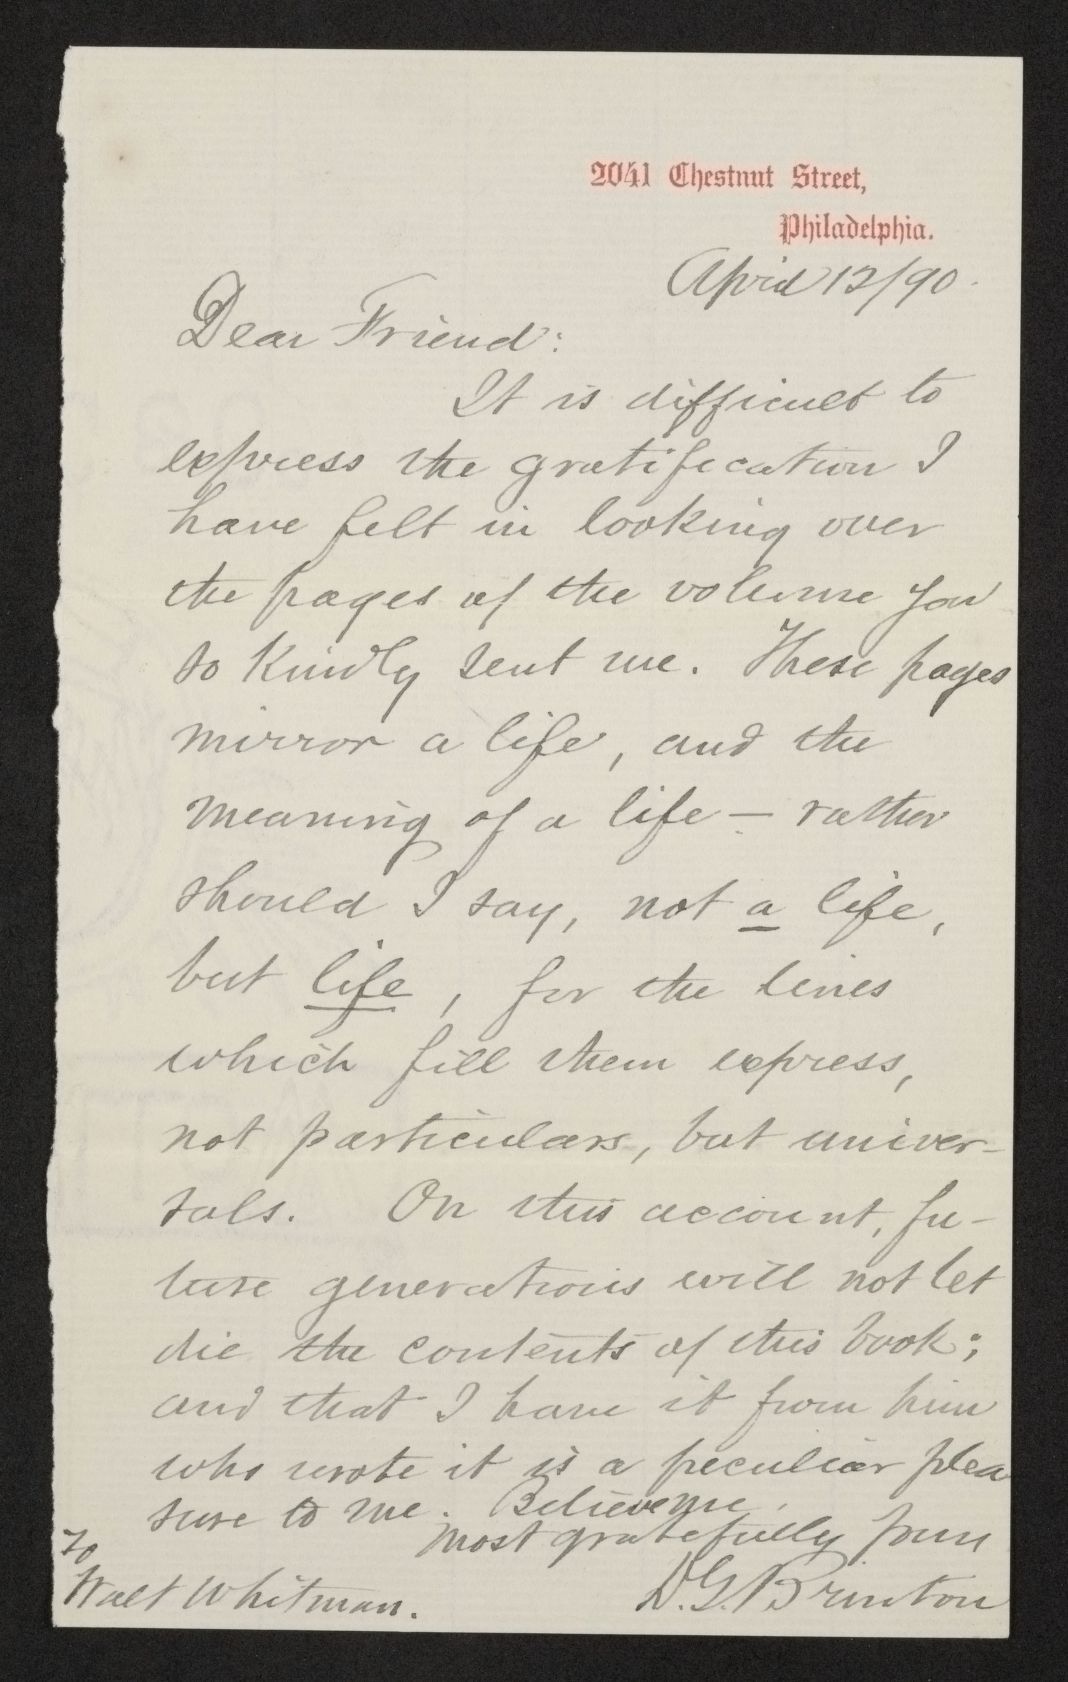 2041 Chestnut Street,
Philadelphia.
April 12/90.
Dear Friend:
It is difficult to
express the gratification I
have felt in looking over
the pages of the volume you
so kindly sent me. These pages
mirror a life, and the
meaning of a life – rather
should I say, not a life,
but life, for the lines
which fill them express,
not particulars, but univer-
sals. On this account, fu-
ture generations will not let
die the contents of this book;
and that I have it from him
who wrote it is a peculiar plea
sure to me. Believe me,
most gratefully yours
D.G. Brinton
To
Walt Whitman.